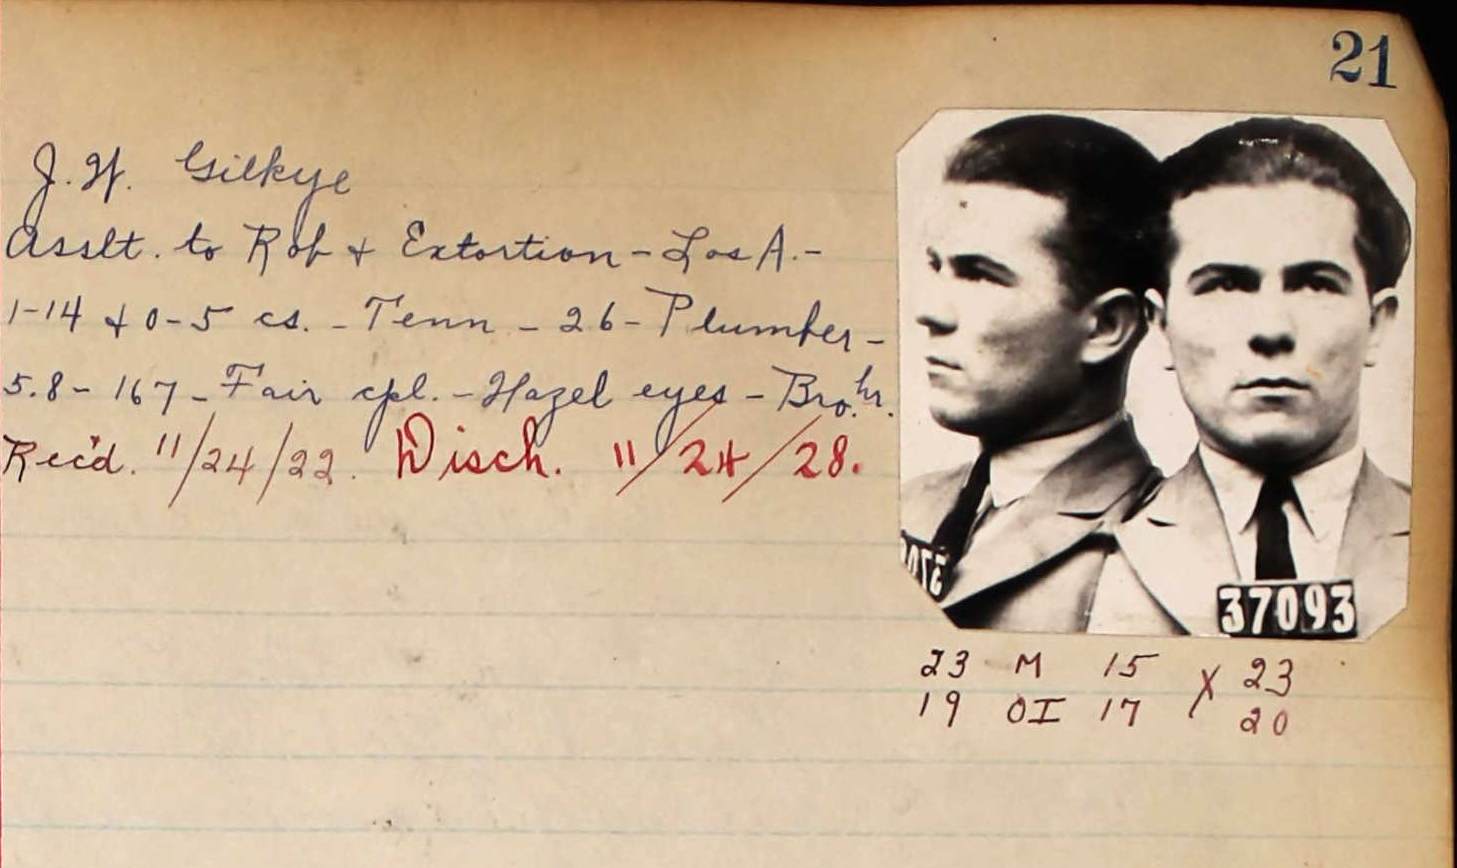 21
J. W. Gilkye
Asslt. to Rob + Extortion - Los A. -
1-14 + 0-5 cs. - Tenn - 26 - Plumber -
5.8 - 167 - Fair cpl. - Hazel eyes - Bro. hr.
Rec'd. 11/24/22. Disch. 11/24/28.
37093
23 M 15 X 23
19 OI 17 20